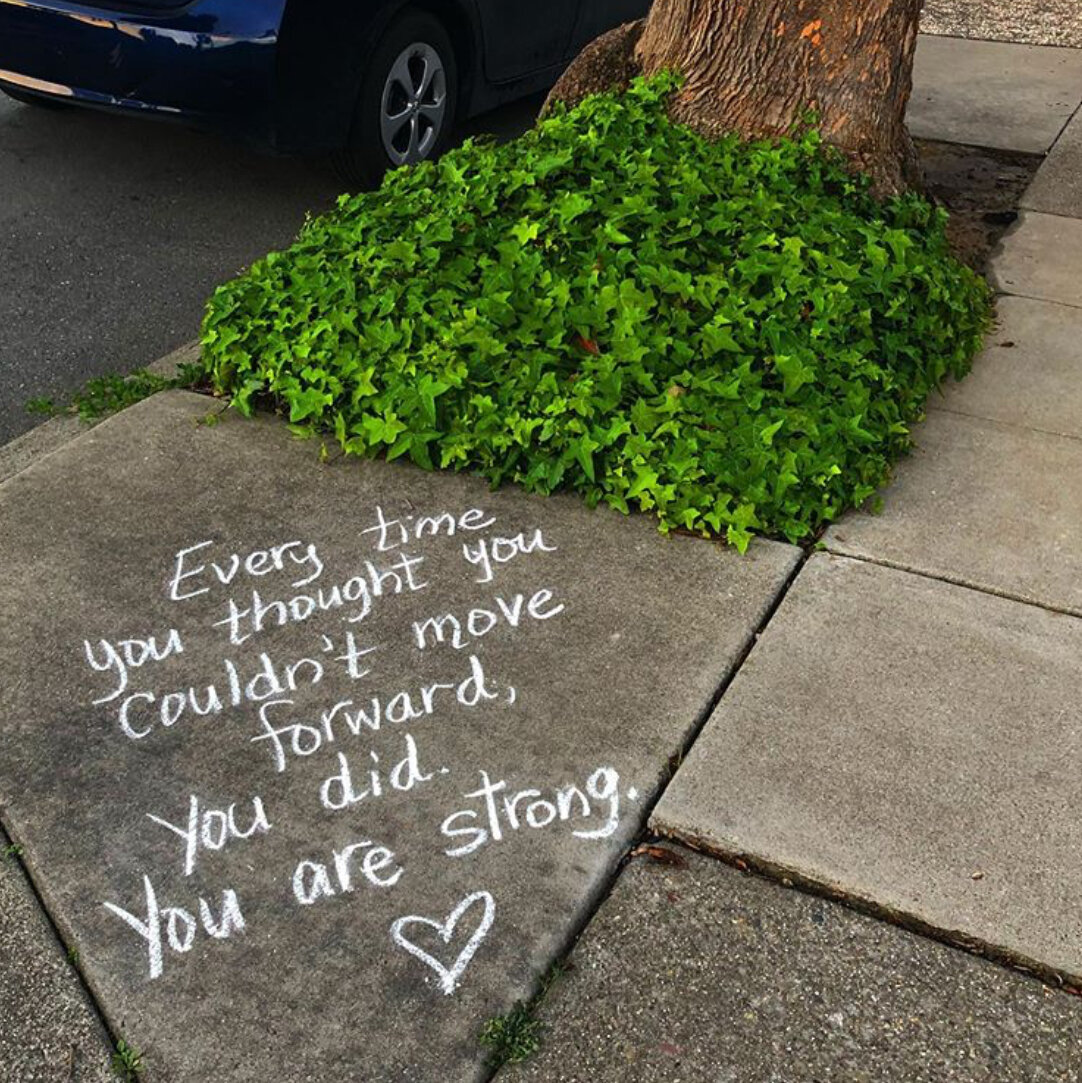 Every time
you thought you
couldn't move
forward,
you did.
You are strong.